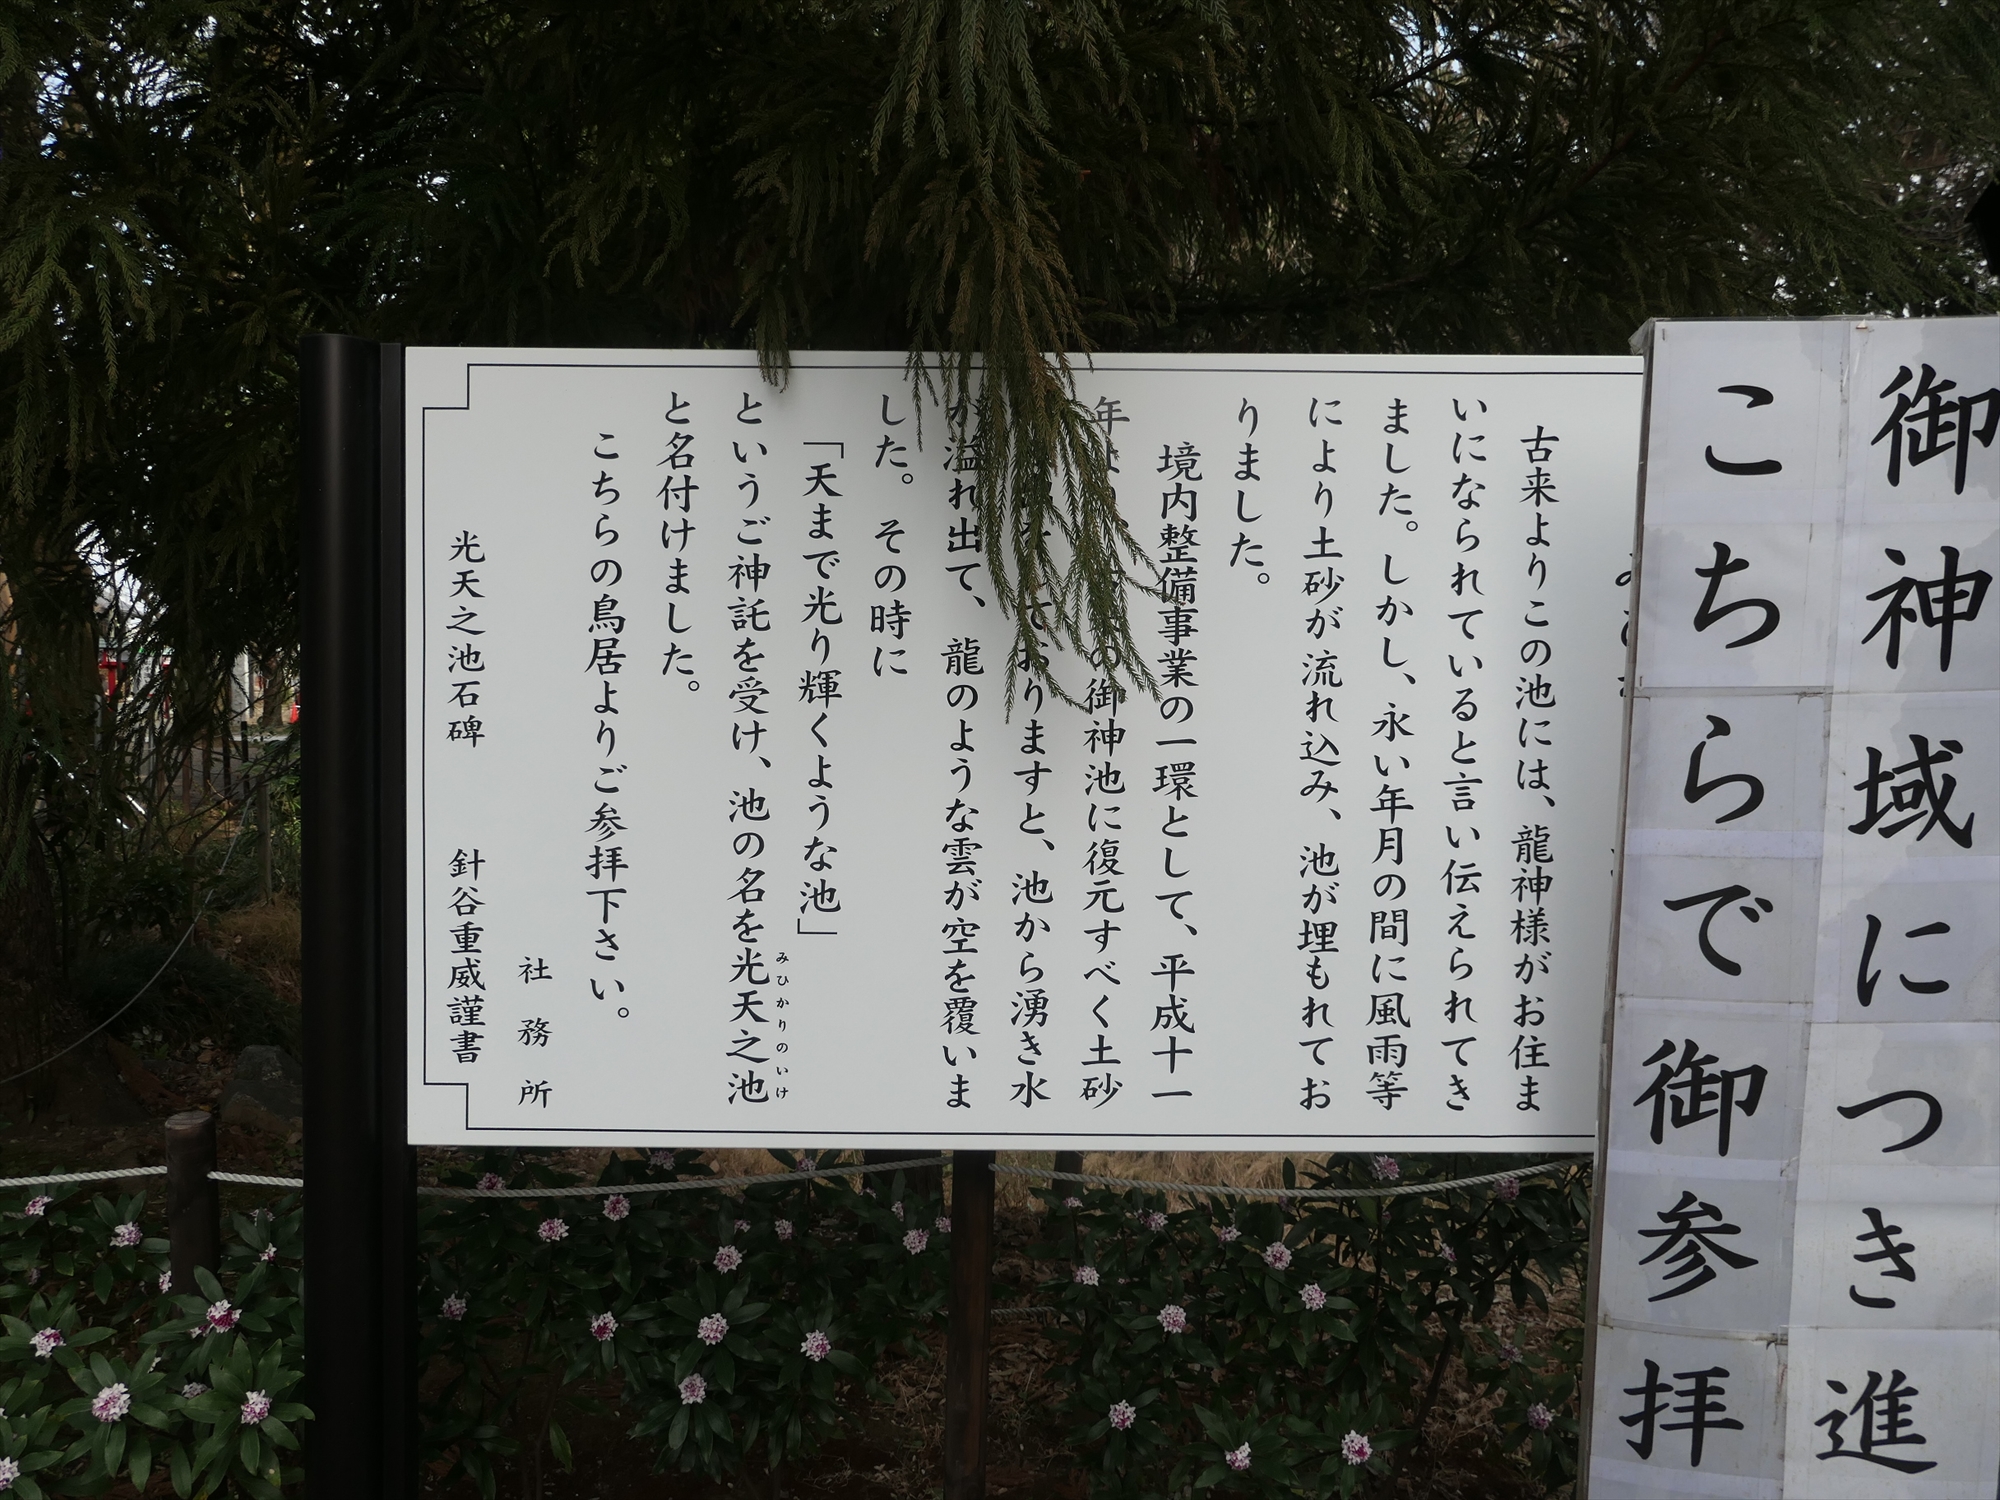 御神域につき進
こちらで御参拝
古来よりこの池には、龍神様がお住ま
いになられていると言い伝えられてき
ました。しかし、永い年月の間に風雨等
により土砂が流れ込み、池が埋もれてお
りました。
境内整備事業の一環として、平成十一
年 の御神池に復元すべく土砂
ておりますと、池から湧き水
が溢れ出て、龍のような雲が空を覆いま
した。その時に
「天まで光り輝くような池」
というご神託を受け、池の名を光天之池
みひかりのいけ
と名付けました。
こちらの鳥居よりご参拝下さい。
社務所
光天之池石碑 針谷重威謹書